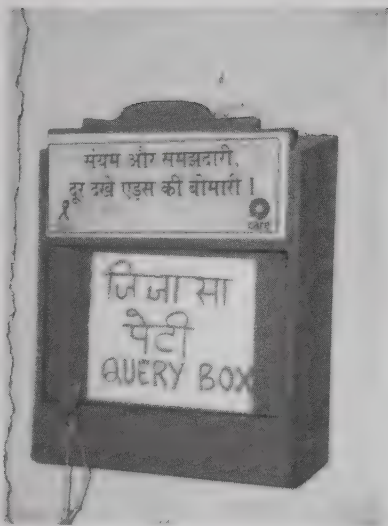 संयम और समझदारी,
दूर रखे एड्स की बीमारी !
care
जिज्ञासा
पेटी
QUERY BOX